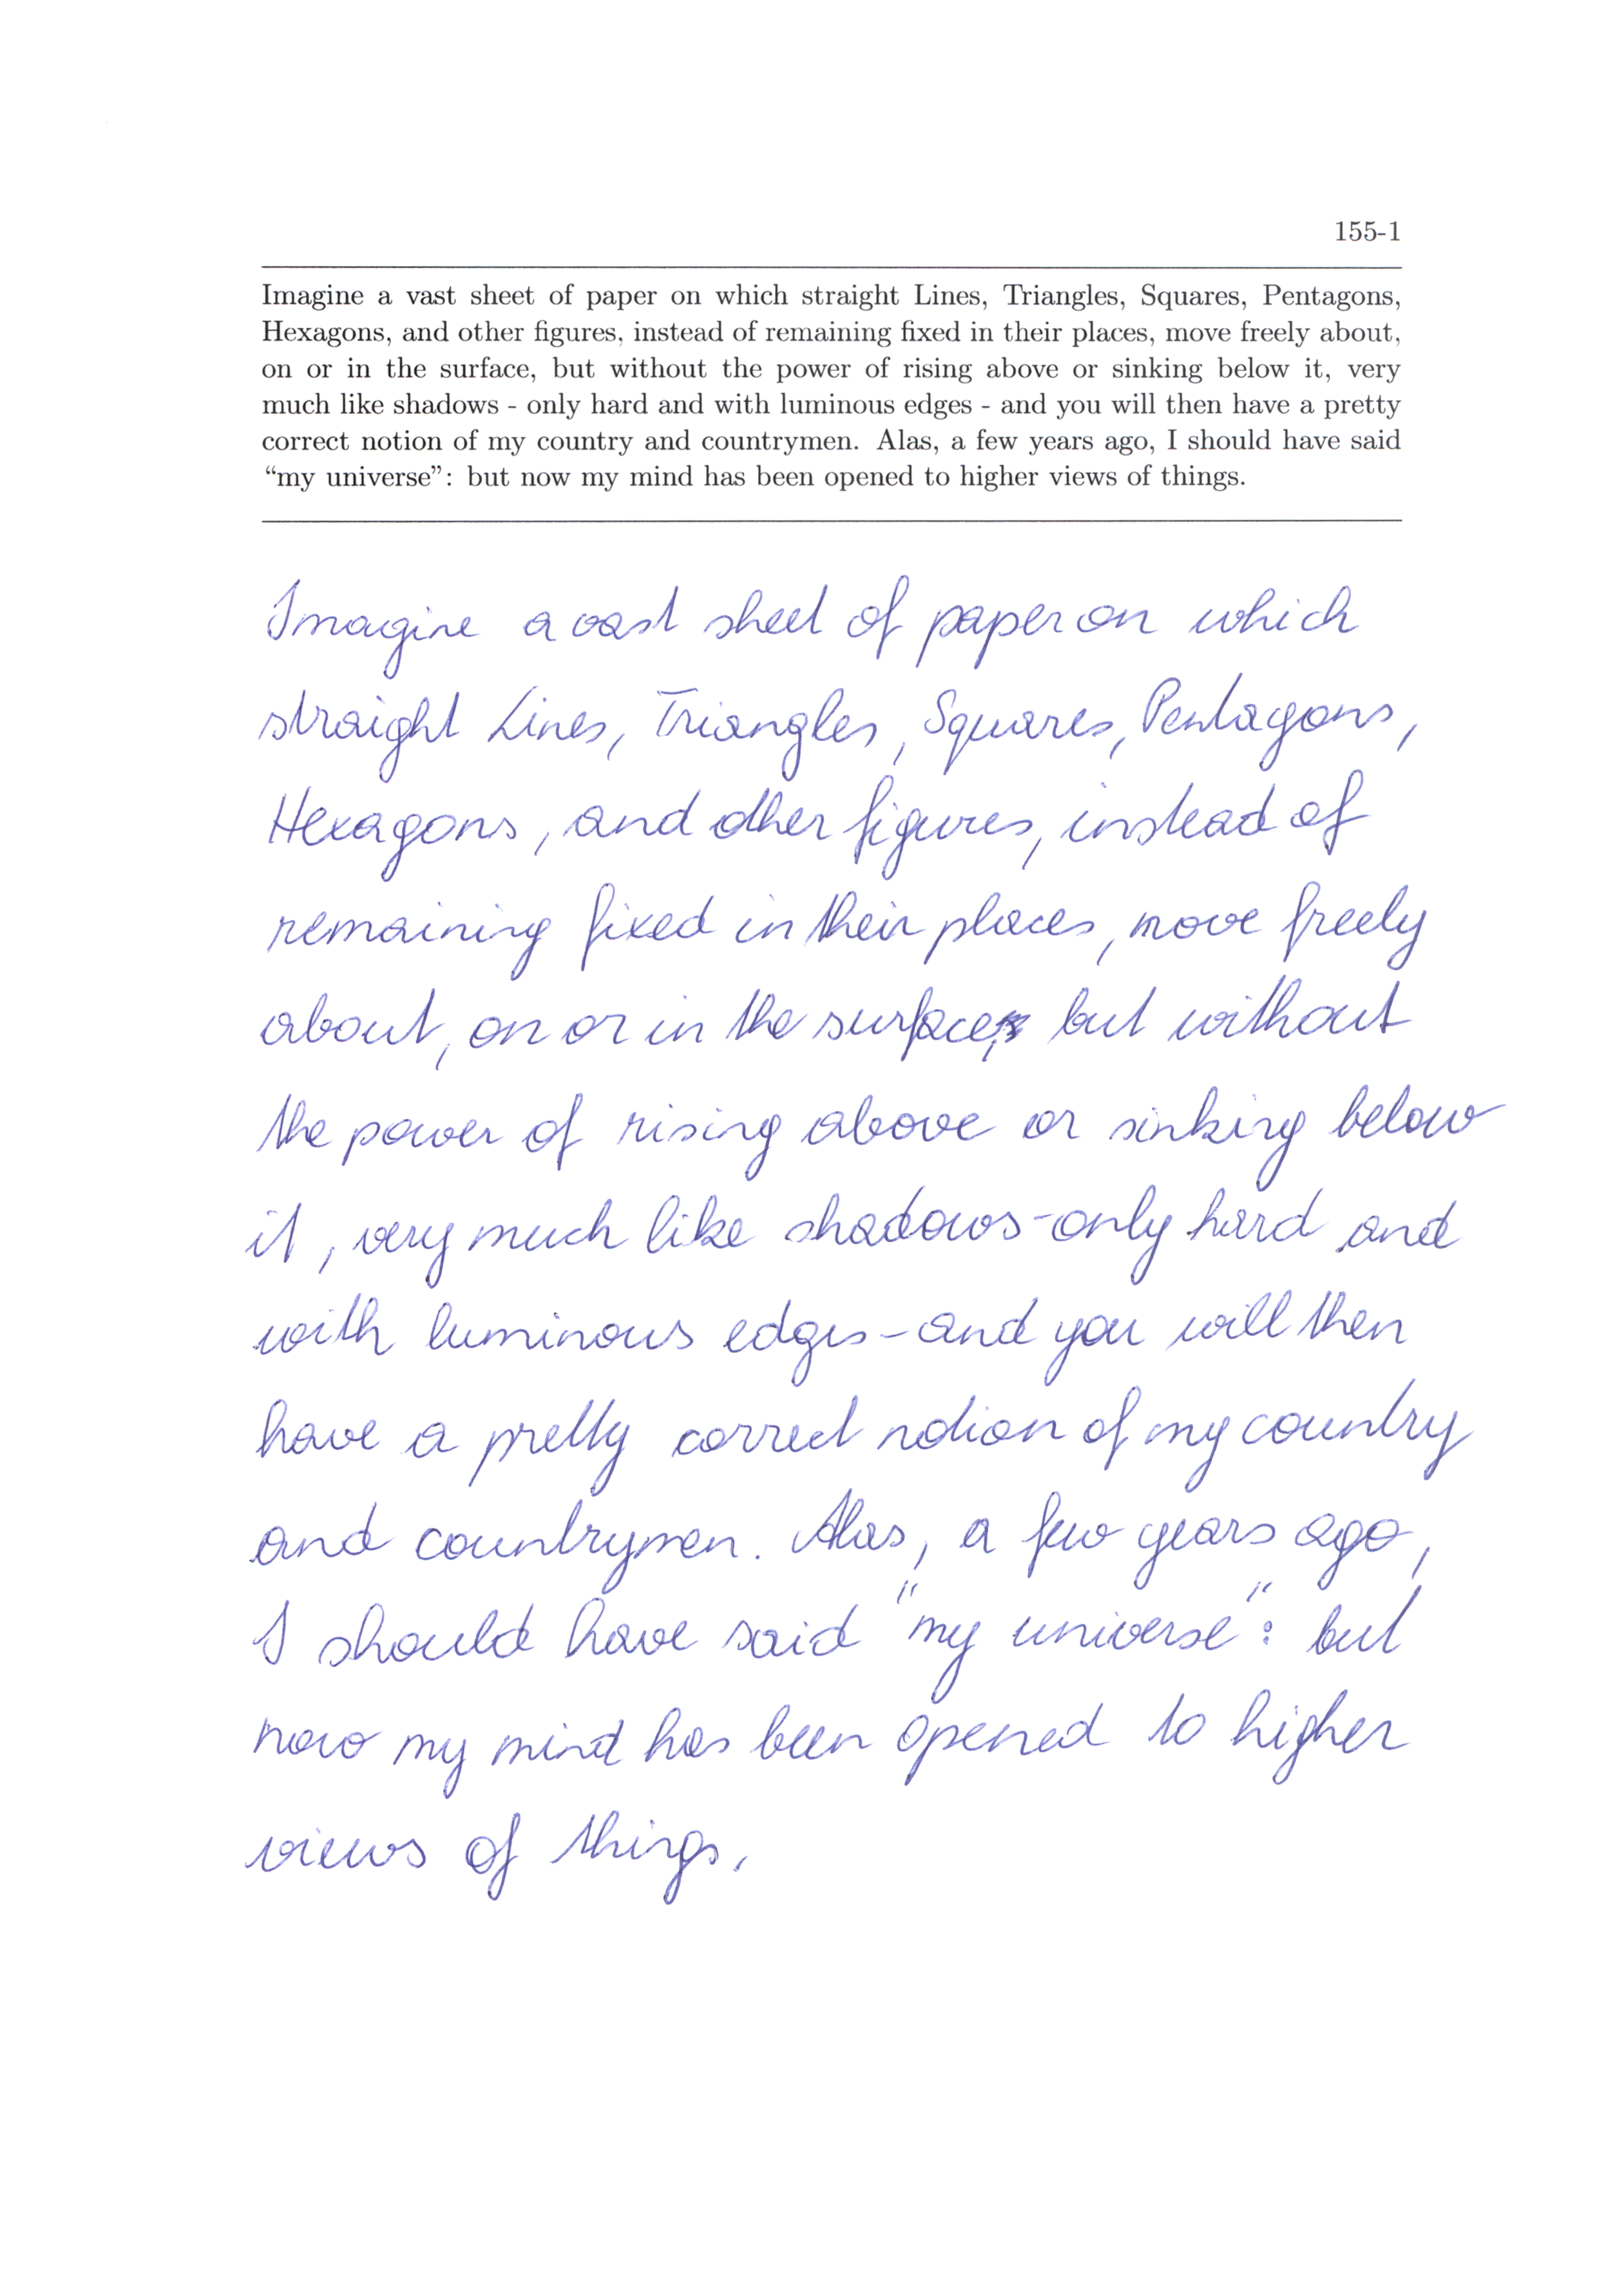 155-1
Imagine a vast sheet of paper on which straight Lines, Triangles, Squares, Pentagons,
Hexagons, and other figures, instead of remaining fixed in their places, move freely about,
on or in the surface, but without the power of rising above or sinking below it, very
much like shadows - only hard and with luminous edges - and you will then have a pretty
correct notion of my country and countrymen. Alas, a few years ago, I should have said
“my universe”: but now my mind has been opened to higher views of things.
Imagine a vast sheet of paper on which
straight Lines, Triangles, Squares, Pentagons,
Hexagons, and other figures, instead of
remaining fixed in their places, move freely
about, on or in the surface, but without
the power of rising above or sinking below
it, very much like shadows - only hard and
with luminous edges - and you will then
have a pretty correct notion of my country
and countrymen. Alas, a few years ago,
I should have said "my universe": but
now my mind has been opened to higher
views of things.